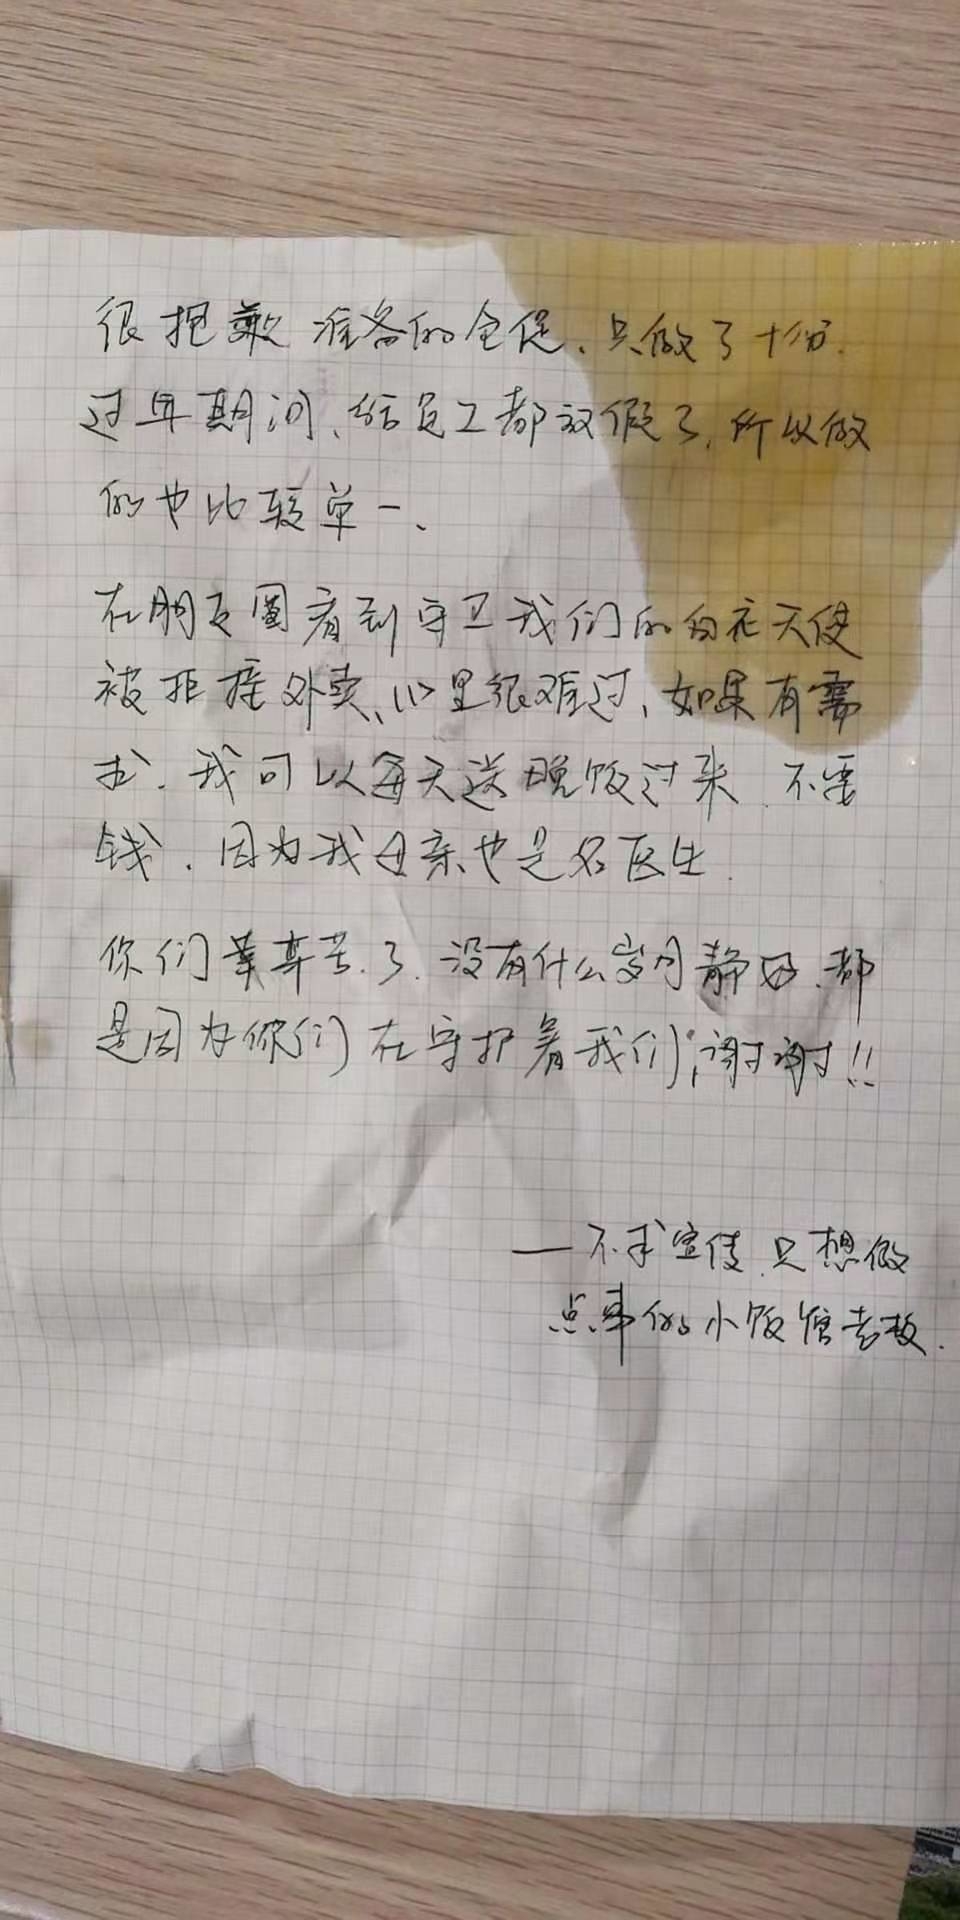 很抱歉 准备的仓促、只做了十份.
过年期间、给员工都放假了, 所以做
的也比较单一、
在朋友圈看到守卫我们的白衣天使
被拒接外卖、心里很难过、如果有需
求. 我可以每天送晚饭过来. 不要
钱. 因为我母亲也是名医生.
你们辛苦了. 没有什么岁月静好. 都
是因为你们在守护着我们, 谢谢!!
—不求宣传 只想做
点事的小饭馆老板.